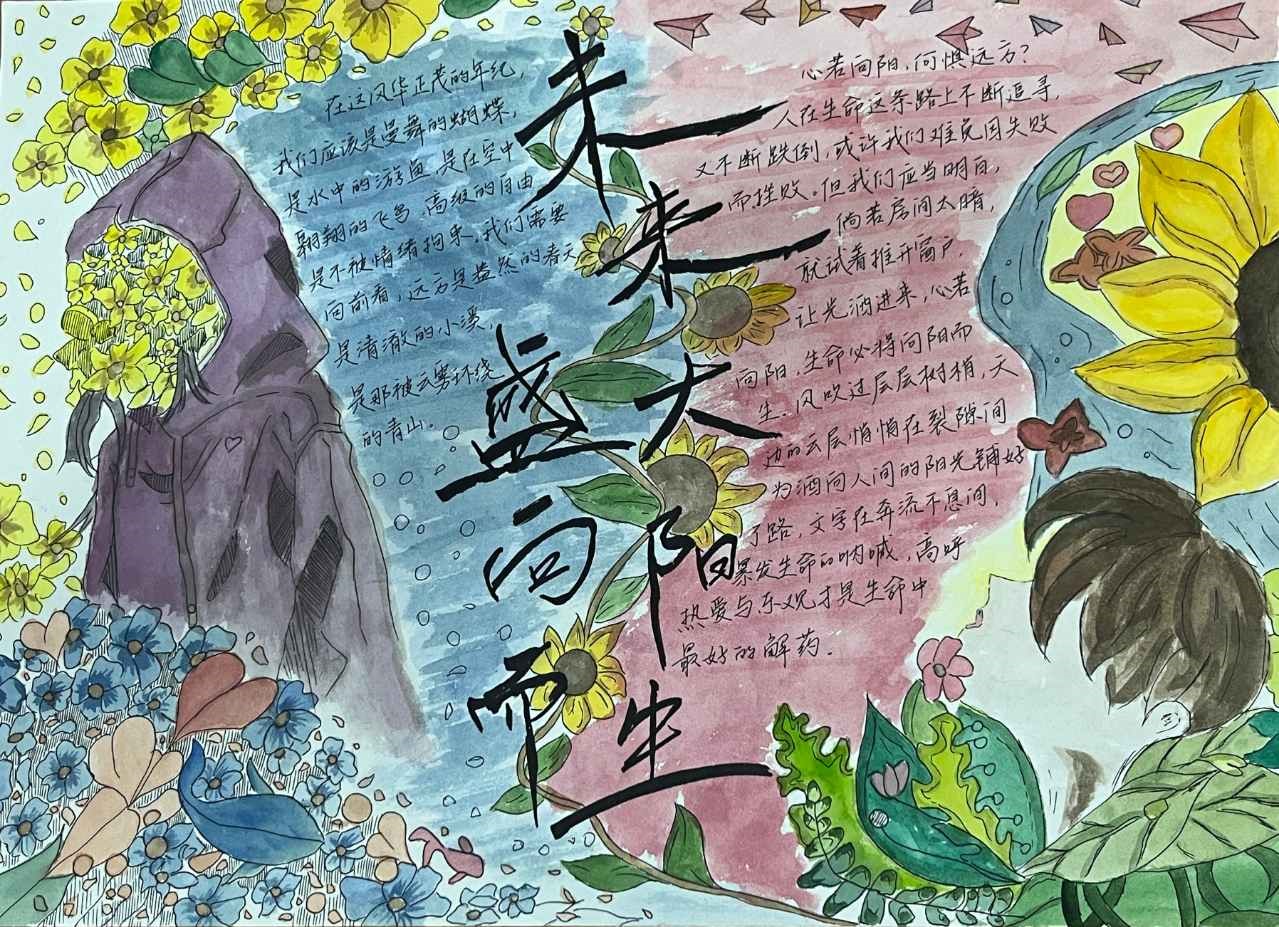 未
来
盛大
向阳
而生
在这风华正茂的年纪，
我们应该是曼舞的蝴蝶，
是水中的游鱼，是在空中
翱翔的飞鸟，高级的自由
是不被情绪拘束，我们需要
向前看，远方是盎然的春天
是清澈的小溪，
是那被云雾环绕
的青山。
心若向阳，何惧远方？
人在生命这条路上不断追寻，
又不断跌倒，或许我们难免因失败
而挫败。但我们应当明白，
倘若房间太暗，
就试着推开窗户，
让光洒进来，心若
向阳，生命必将向阳而
生。风吹过层层树梢，天
边的云层悄悄在裂隙间
为洒向人间的阳光铺好
了路，文字在奔流不息间，
暴发生命的呐喊，高呼
热爱与乐观才是生命中
最好的解药。